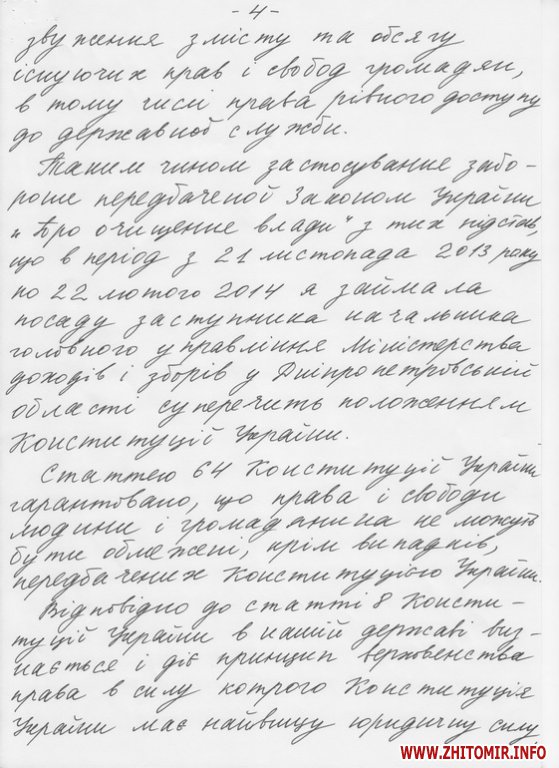 - 4 -
звуження змісту та обсягу
існуючих прав і свобод громадян,
в тому числі права рівного доступу
до державної служби.
Таким чином застосування забо-
рони передбаченої Законом України
„Про очищення влади" з тих підстав,
що в період з 21 листопада 2013 року
по 22 лютого 2014 я займала
посаду заступника начальника
головного управління Міністерства
доходів і зборів у Дніпропетровській
області суперечить положенням
Конституції України.
Статтею 64 Конституції України
гарантовано, що права і свободи
людини і громадянина не можуть
бути обмежені, крім випадків,
передбачених Конституцією України.
Відповідно до статті 8 Консти-
туції України в нашій державі виз-
нається і діє принцип верховенства
права в силу котрого Конституція
України має найвищу юридичну силу,
WWW.ZHITOMIR.INFO